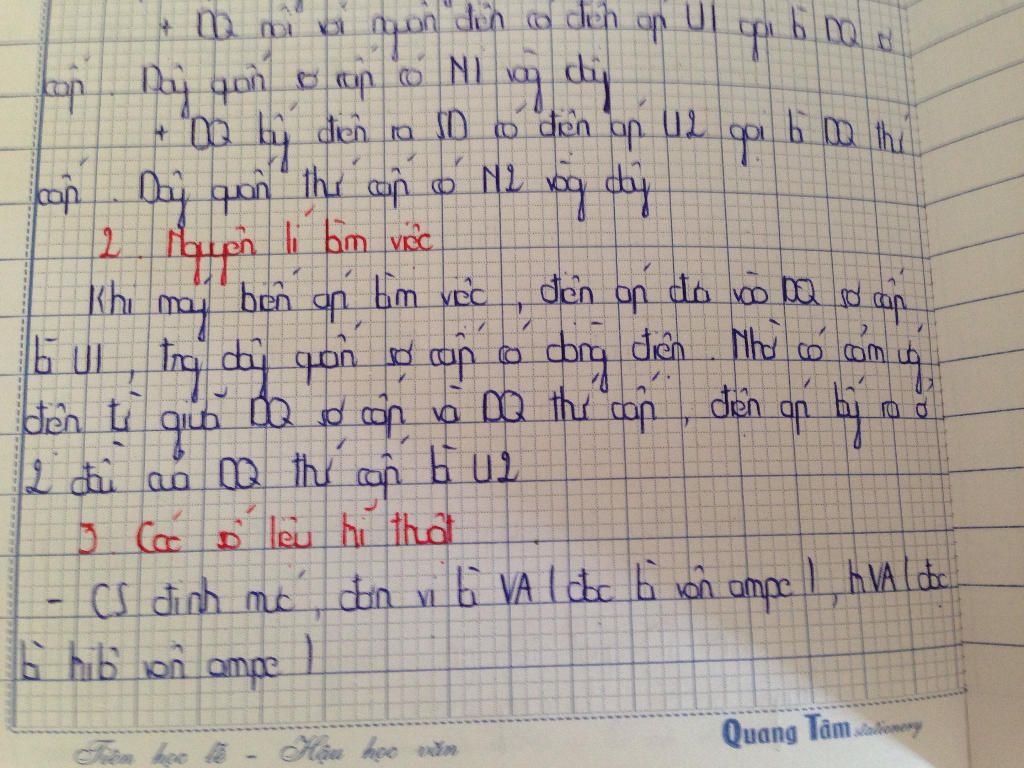 + DQ nối với nguồn điện có điện áp U1 gọi là DQ sơ
cấp. Dây quấn sơ cấp có N1 vòng dây
+ DQ lấy điện ra SD có điện áp U2 gọi là DQ thứ
cấp. Dây quấn thứ cấp có N2 vòng dây
2. Nguyên lí làm việc
Khi máy biến áp làm việc, điện áp đa vào DQ sơ cấp
là U1, trg dây quấn sơ cấp có dòng điện. Nhờ có cảm ứg
điện từ giữa DQ sơ cấp và DQ thứ cấp, điện áp lấy ra ở
2 đầu của DQ thứ cấp là U2
3. Các số liệu kĩ thuật
- CS định mức, đơn vị là VA (đọc là vôn ampe), kVA (đọc
là kilô vôn ampe)
Tiên học lễ - Hậu học văn
Quang Tâm stationery